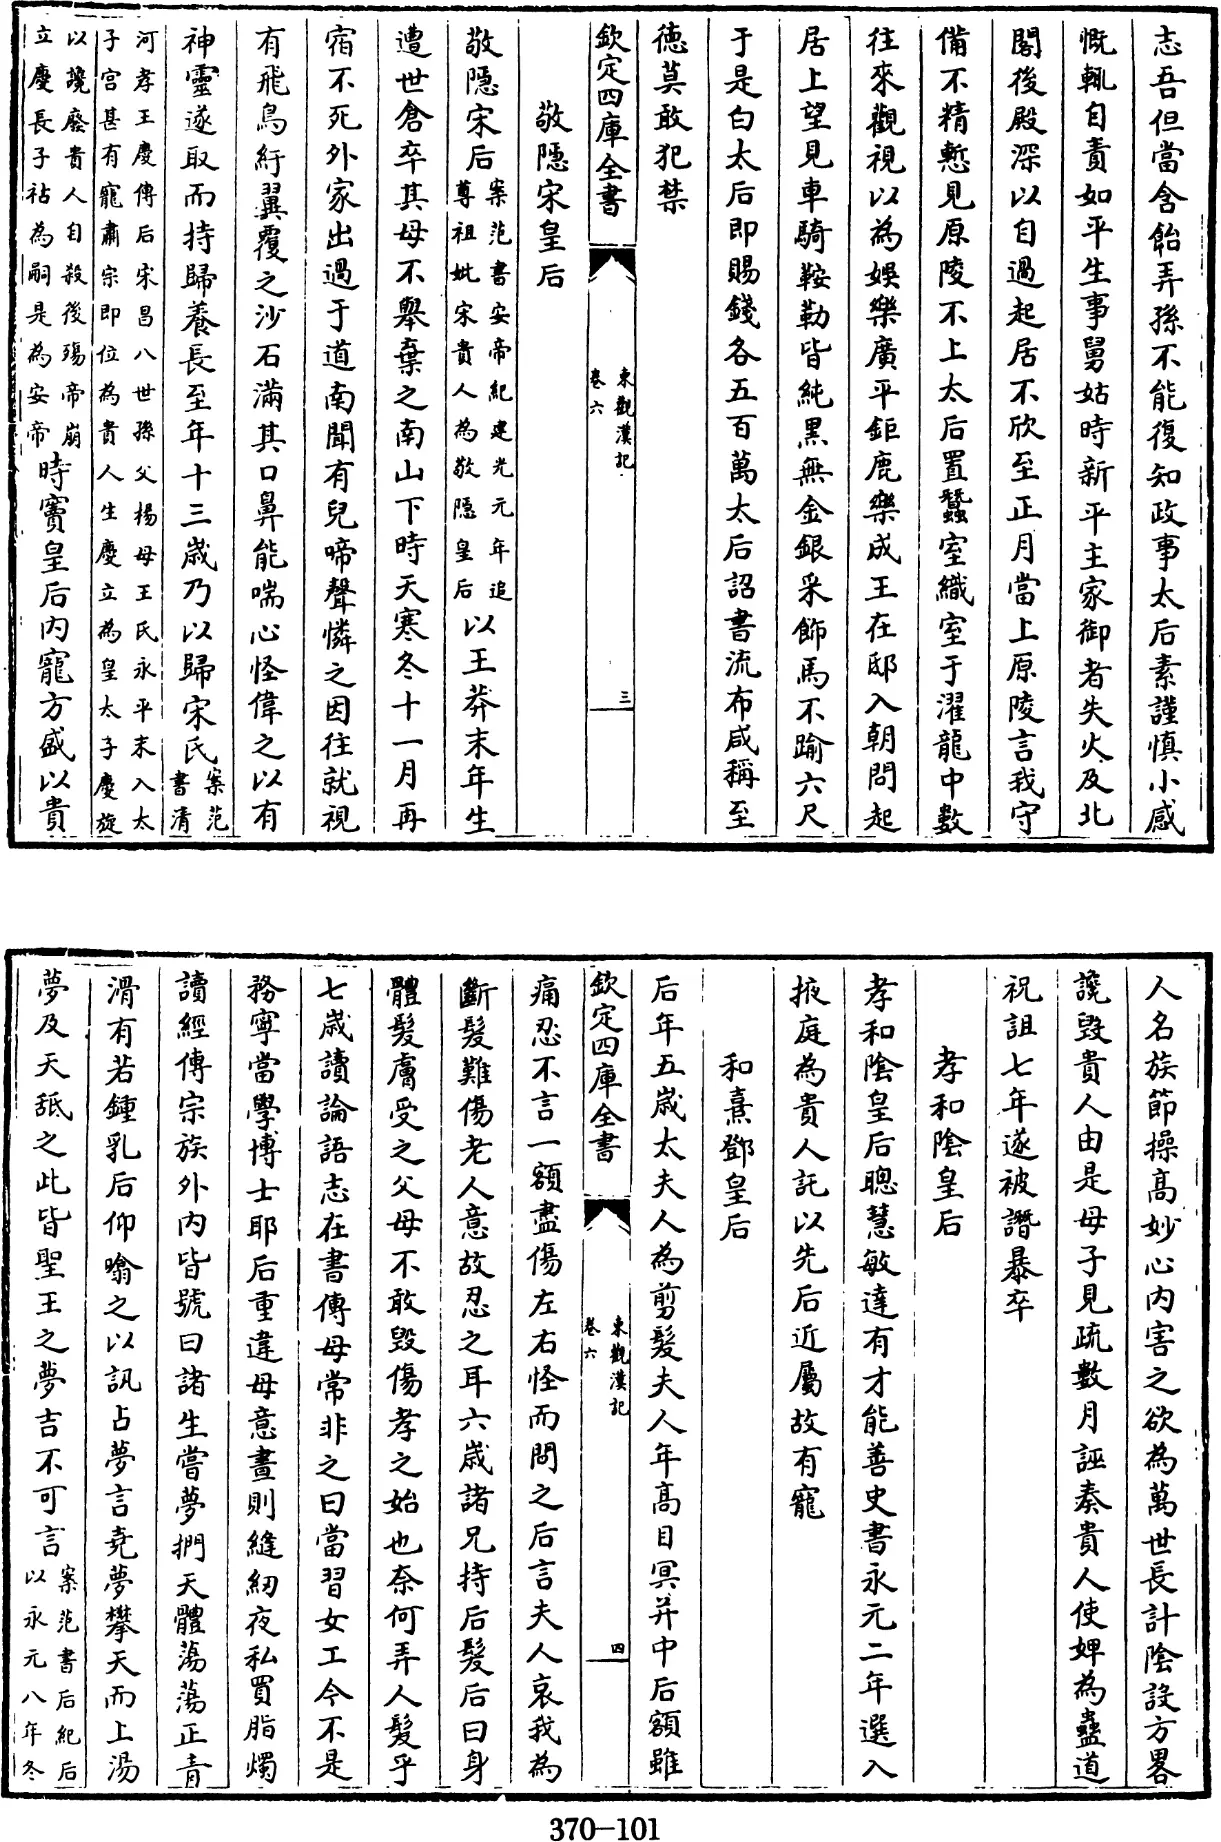 志吾但當含飴弄孫不能復知政事太后素謹慎小感
慨輒自責如平生事舅姑時新平主家御者失火及北
閣後殿深以自過起居不欣至正月當上原陵言我守
備不精慙見原陵不上太后置蠶室織室于濯龍中數
往來觀視以為娛樂廣平鉅鹿樂成王在邸入朝問起
居上望見車騎鞍勒皆純黒無金銀采飾馬不踰六尺
于是白太后即賜錢各五百萬太后詔書流布咸稱至
徳莫敢犯禁
欽定四庫全書
東觀漢記
卷六
三
敬隱宋皇后
敬隱宋后案范書安帝紀建光元年追
尊祖妣宋貴人為敬隱皇后以王莽末年生
遭世倉卒其母不舉棄之南山下時天寒冬十一月再
宿不死外家出過于道南聞有兒啼聲憐之因往就視
有飛鳥紆翼覆之沙石滿其口鼻能喘心怪偉之以有
神靈遂取而持歸養長至年十三歲乃以歸宋氏案范
書清
河孝王慶傳后宋昌八世孫父楊母王氏永平末入太
子宫甚有寵肅宗即位為貴人生慶立為皇太子慶旋
以讒廢貴人自殺後殤帝崩
立慶長子祜為嗣是為安帝時竇皇后内寵方盛以貴
人名族節操髙妙心内害之欲為萬世長計陰設方畧
讒毁貴人由是母子見疏數月誣奏貴人使婢為蠱道
祝詛七年遂被譖暴卒
孝和陰皇后
孝和陰皇后聰慧敏達有才能善史書永元二年選入
掖庭為貴人託以先后近屬故有寵
和熹鄧皇后
后年五歲太夫人為剪髮夫人年髙目冥并中后額雖
欽定四庫全書
東觀漢記
卷六
四
痛忍不言一額盡傷左右怪而問之后言夫人哀我為
斷髮難傷老人意故忍之耳六歲諸兄持后髮后曰身
體髮膚受之父母不敢毁傷孝之始也奈何弄人髮乎
七歲讀論語志在書傳母常非之曰當習女工今不是
務寧當學博士耶后重違母意晝則縫紉夜私買脂燭
讀經傳宗族外内皆號曰諸生嘗夢捫天體蕩蕩正青
滑有若鍾乳后仰噏之以訊占夢言堯夢攀天而上湯
夢及天舐之此皆聖王之夢吉不可言案范書后紀后
以永元八年冬
370—101